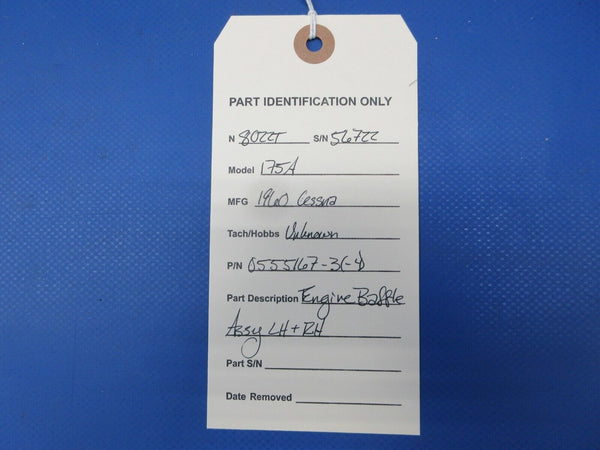 PART IDENTIFICATION ONLY
N 8022T S/N 56722
Model 175A
MFG 1960 Cessna
Tach/Hobbs Unknown
P/N 0555167-3(-4)
Part Description Engine Baffle
Assy LH + RH
Part S/N
Date Removed